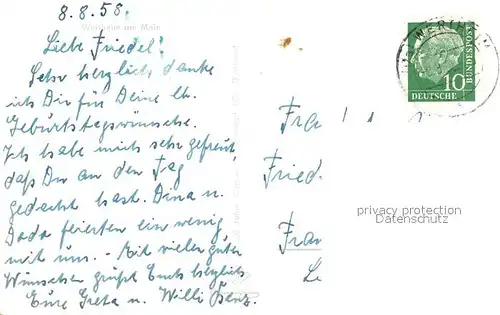 8.8.58.
Wertheim am Main
Liebe Friedel!
Sehr herzlich danke
ich Dir für Deine lb.
Geburtstagswünsche.
Ich habe mich sehr gefreut,
daß Du an den Tag
gedacht hast. Dina u.
Dada feierten ein wenig
mit uns. - Mit vielen guten
Wünschen grüßt Euch herzlich
Eure Greta u. Willi
WERTHEIM
10
DEUTSCHE
BUNDESPOST
Fra
Fried
Fran
privacy protection
Datenschutz